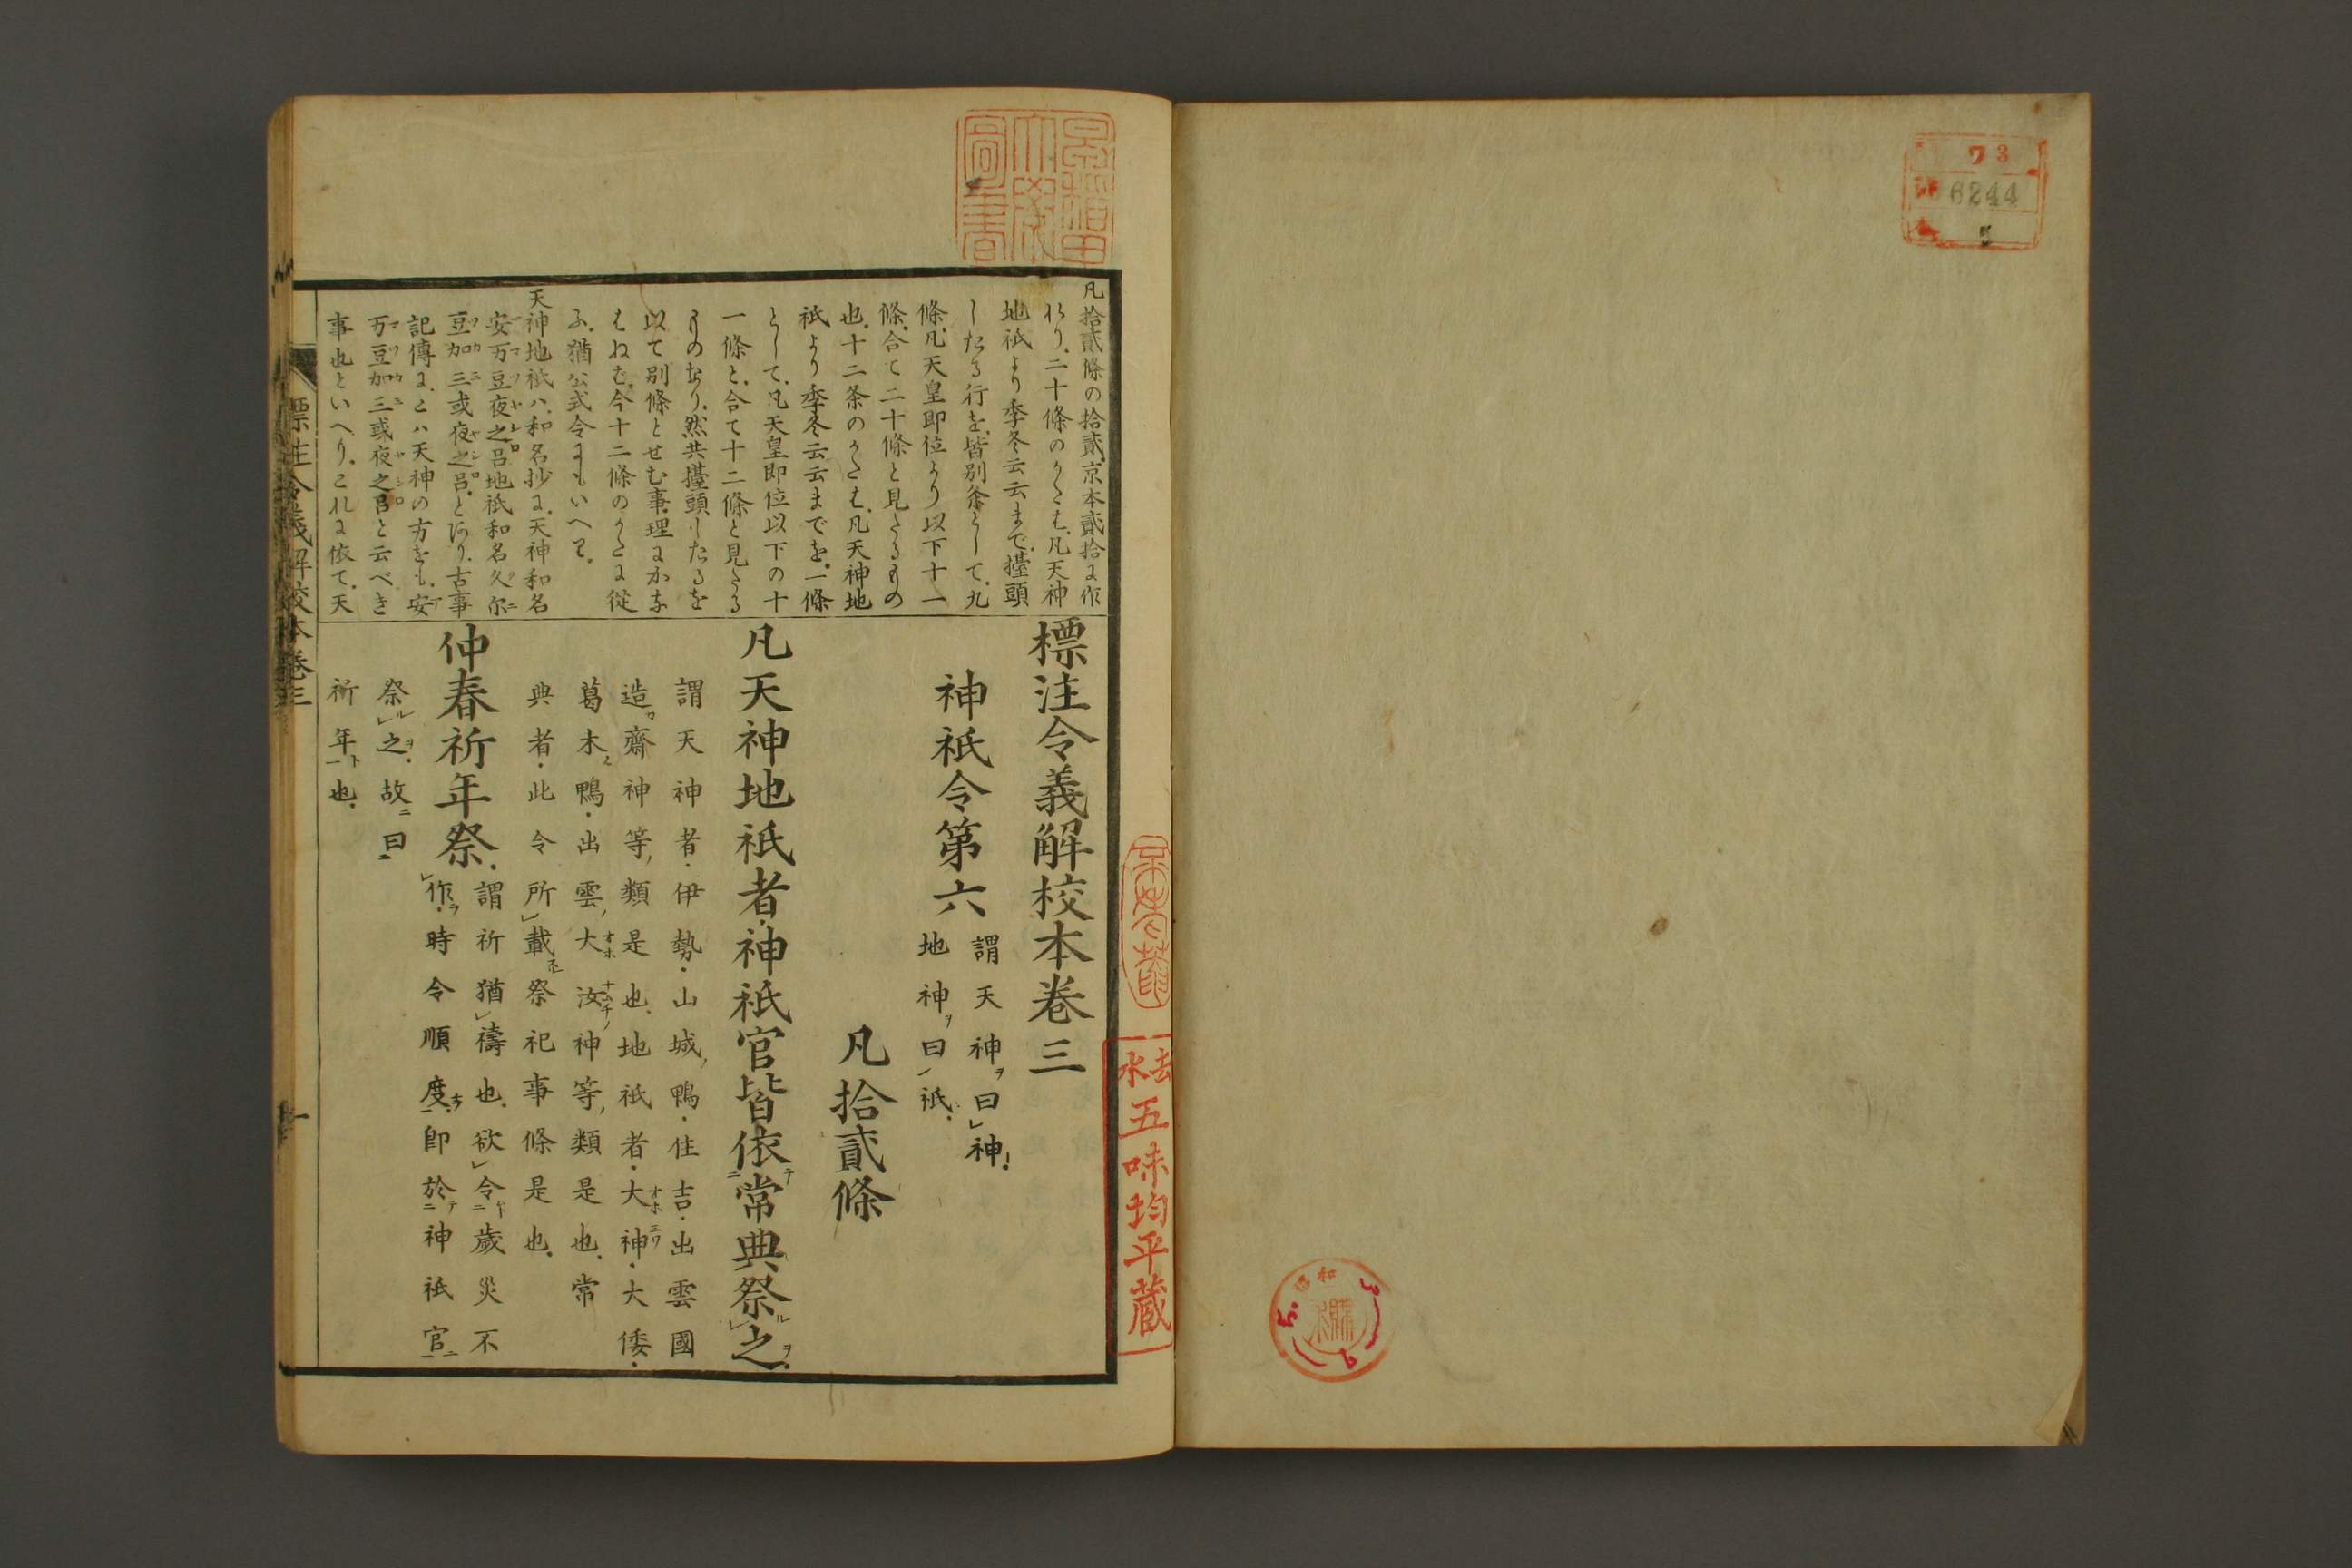 73
6244
5
昭和
5.
早稲田
大學
圖書
五味均平蔵
凡拾貳條の拾貳、京本貳拾に作
れり、二十條のかたは、凡天神
地祇より季冬云云まで、擡頭
したる行を、皆別条として、九
條、凡天皇即位より以下十一
條、合て二十條と見たるもの
也、十二条のかたは、凡天神地
祇より季冬云云までを、一條
として、凡天皇即位以下の十
一條と、合て十二條と見たる
ものなり、然共擡頭したるを
以て別條とせむ事、理にかな
はねば、今十二條のかたに從
ふ、猶公式令にもいへり。
天神地祇ハ、和名抄に、天神和名
安万豆夜之呂地祇和名久尔
豆加三或夜之呂、とあり、古事
記傳に、こハ天神の方をも、安
万豆加三或夜之呂と云べき
事也といへり、これに依て、天
標注令義解校本卷三
神祇令第六
謂天神ヲ曰レ神、
地神ヲ曰レ祇、
凡拾貳條
凡天神地祇者、神祇官皆依ニ常典祭レ之ヲ、
謂天神者、伊勢、山城、鴨、住吉、出雲國
造ノ齋神等、類是也、地祇者、大神、大倭、
葛木ノ鴨、出雲、大汝神等、類是也、常
典者、此令所レ載祭祀事條是也、
仲春祈年祭、
謂祈猶レ禱也、欲レ令ニ歲災不
レ作ラ、時令順度ナラ、即於ニ神祇官ニ
祭レ之ヲ、故ニ曰ニ
祈年ト也、
標注令義解校本卷三
一